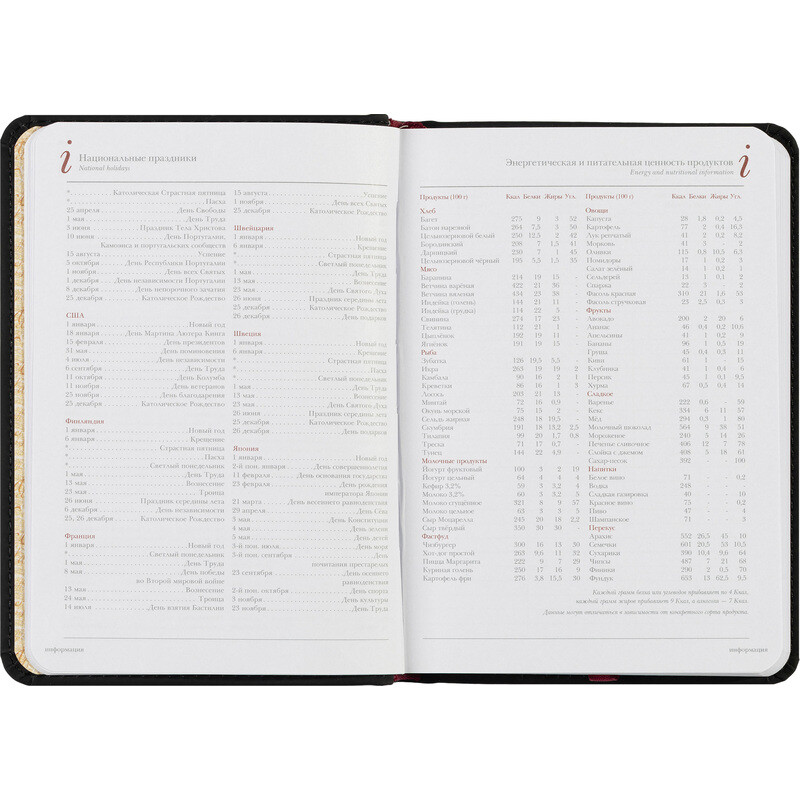 i
Национальные праздники
National holidays
* Католическая Страстная пятница
* Пасха
25 апреля День Свободы
1 мая День Труда
3 июня Праздник Тела Христова
10 июня День Португалии,
Камоэнса и португальских сообществ
15 августа Успение
5 октября День Республики Португалии
1 ноября День всех Святых
1 декабря День независимости Португалии
8 декабря День непорочного зачатия
25 декабря Католическое Рождество
США
1 января Новый год
18 января День Мартина Лютера Кинга
15 февраля День президентов
31 мая День поминовения
4 июля День независимости
6 сентября День Труда
11 октября День Колумба
11 ноября День ветеранов
25 ноября День благодарения
25 декабря Католическое Рождество
Финляндия
1 января Новый год
6 января Крещение
* Страстная пятница
* Пасха
* Светлый понедельник
1 мая День Труда
13 мая Вознесение
23 мая Троица
26 июня Праздник середины лета
6 декабря День независимости
25, 26 декабря Католическое Рождество
Франция
1 января Новый год
* Светлый понедельник
1 мая День Труда
8 мая День победы
во Второй мировой войне
13 мая Вознесение
24 мая Троица
14 июля День взятия Бастилии
15 августа Успение
1 ноября День всех Святых
25 декабря Католическое Рождество
Швейцария
1 января Новый год
6 января Крещение
* Страстная пятница
* Светлый понедельник
1 мая День Труда
13 мая Вознесение
23 мая День Святого Духа
26 июня Праздник середины лета
25 декабря Католическое Рождество
26 декабря День подарков
Швеция
1 января Новый год
6 января Крещение
* Страстная пятница
* Пасха
* Светлый понедельник
1 мая День Труда
13 мая Вознесение
23 мая День Святого Духа
26 июня Праздник середины лета
25 декабря Католическое Рождество
26 декабря День подарков
Япония
1 января Новый год
2-й пон. января День совершеннолетия
11 февраля День основания государства
23 февраля День рождения
императора Японии
21 марта День весеннего равноденствия
29 апреля День Сёва
3 мая День Конституции
4 мая День зелени
5 мая День детей
3-й пон. июля День моря
3-й пон. сентября День
почитания престарелых
23 сентября День осеннего
равноденствия
2-й пон. октября День спорта
3 ноября День культуры
23 ноября День Труда
информация
Энергетическая и питательная ценность продуктов
Energy and nutritional information
i
Продукты (100 г) Ккал Белки Жиры Угл.
Хлеб
Багет 275 9 3 52
Батон нарезной 264 7,5 3 50
Цельнозерновой белый 250 12,5 2 42
Бородинский 208 7 1,5 41
Дарницкий 230 7 1 45
Цельнозерновой чёрный 195 5,5 1,5 35
Мясо
Баранина 214 19 15 -
Ветчина варёная 422 21 36 -
Ветчина вяленая 434 23 38 -
Индейка (голень) 144 21 11 -
Индейка (грудка) 114 22 5 -
Свинина 274 17 23 -
Телятина 112 21 1 -
Цыплёнок 192 19 11 -
Ягнёнок 191 19 15 -
Рыба
Зубатка 126 19,5 5,5 -
Икра 263 19 19 2
Камбала 90 16 2 -
Креветки 86 16 1 3
Лосось 203 21 13 -
Минтай 72 16 0,9 -
Окунь морской 75 15 2 -
Сельдь жирная 248 18 19,5 -
Скумбрия 191 18 13,2 2,5
Тилапия 99 20 1,7 0,8
Треска 71 17 0,7 -
Тунец 144 22 4,9 -
Молочные продукты
Йогурт фруктовый 100 3 2 19
Йогурт цельный 64 4 4 4
Кефир 3,2% 59 3 3,2 4
Молоко 3,2% 60 3 3,2 5
Молоко сгущённое 321 8 9 57
Молоко цельное 63 3 3 5
Сыр Моцарелла 245 20 18 2,2
Сыр твёрдый 350 30 26 -
Фастфуд
Чизбургер 300 16 13 30
Хот-дог простой 263 9,6 11 32
Пицца Маргарита 222 9 7 29
Куриная голень 250 17 16 9
Картофель фри 276 3,8 15,5 30
Продукты (100 г) Ккал Белки Жиры Угл.
Овощи
Капуста 28 1,8 0,2 4,5
Картофель 77 2 0,4 16,5
Лук репчатый 41 2 0,2 8,2
Морковь 41 3 - 2
Оливки 115 0,8 10,5 6,3
Помидоры 14 1 0,2 3
Салат зелёный 14 1 0,2 1
Сельдерей 13 1 0,1 2
Спаржа 22 3 - 2
Фасоль красная 310 21 1,6 53
Фасоль стручковая 23 2,5 0,3 3
Фрукты
Авокадо 200 2 20 6
Ананас 46 0,4 0,2 10,6
Апельсины 41 1 0,2 9
Бананы 96 1 0,5 19
Груша 45 0,4 0,3 11
Киви 61 1 - 15
Клубника 41 1 0,4 6
Персик 45 1 0,1 9,5
Хурма 67 0,5 0,4 14
Сладкое
Варенье 222 0,6 - 59
Кекс 334 6 11 57
Мёд 294 0,3 1 80
Молочный шоколад 564 9 38 51
Мороженое 240 5 14 26
Печенье сливочное 406 12 7 78
Слойка с джемом 408 5 18 61
Сахар-песок 392 - - 100
Напитки
Белое вино 71 - - 0,2
Водка 248 - - -
Сладкая газировка 40 - - 10
Красное вино 75 - - 0,2
Пиво 47 - - 4
Шампанское 71 - - 3
Перекус
Арахис 552 26,5 45 10
Семечки 601 20,5 53 10,5
Сухарики 390 10,4 9,6 64
Чипсы 487 7 21 68
Финики 296 2 0,5 70
Фундук 653 13 62,5 9,5
Каждый грамм белка или углеводов прибавляет по 4 Ккал,
каждый грамм жиров прибавляет 9 Ккал, а алкоголь — 7 Ккал.
Данные могут отличаться в зависимости от конкретного сорта продукта.
информация